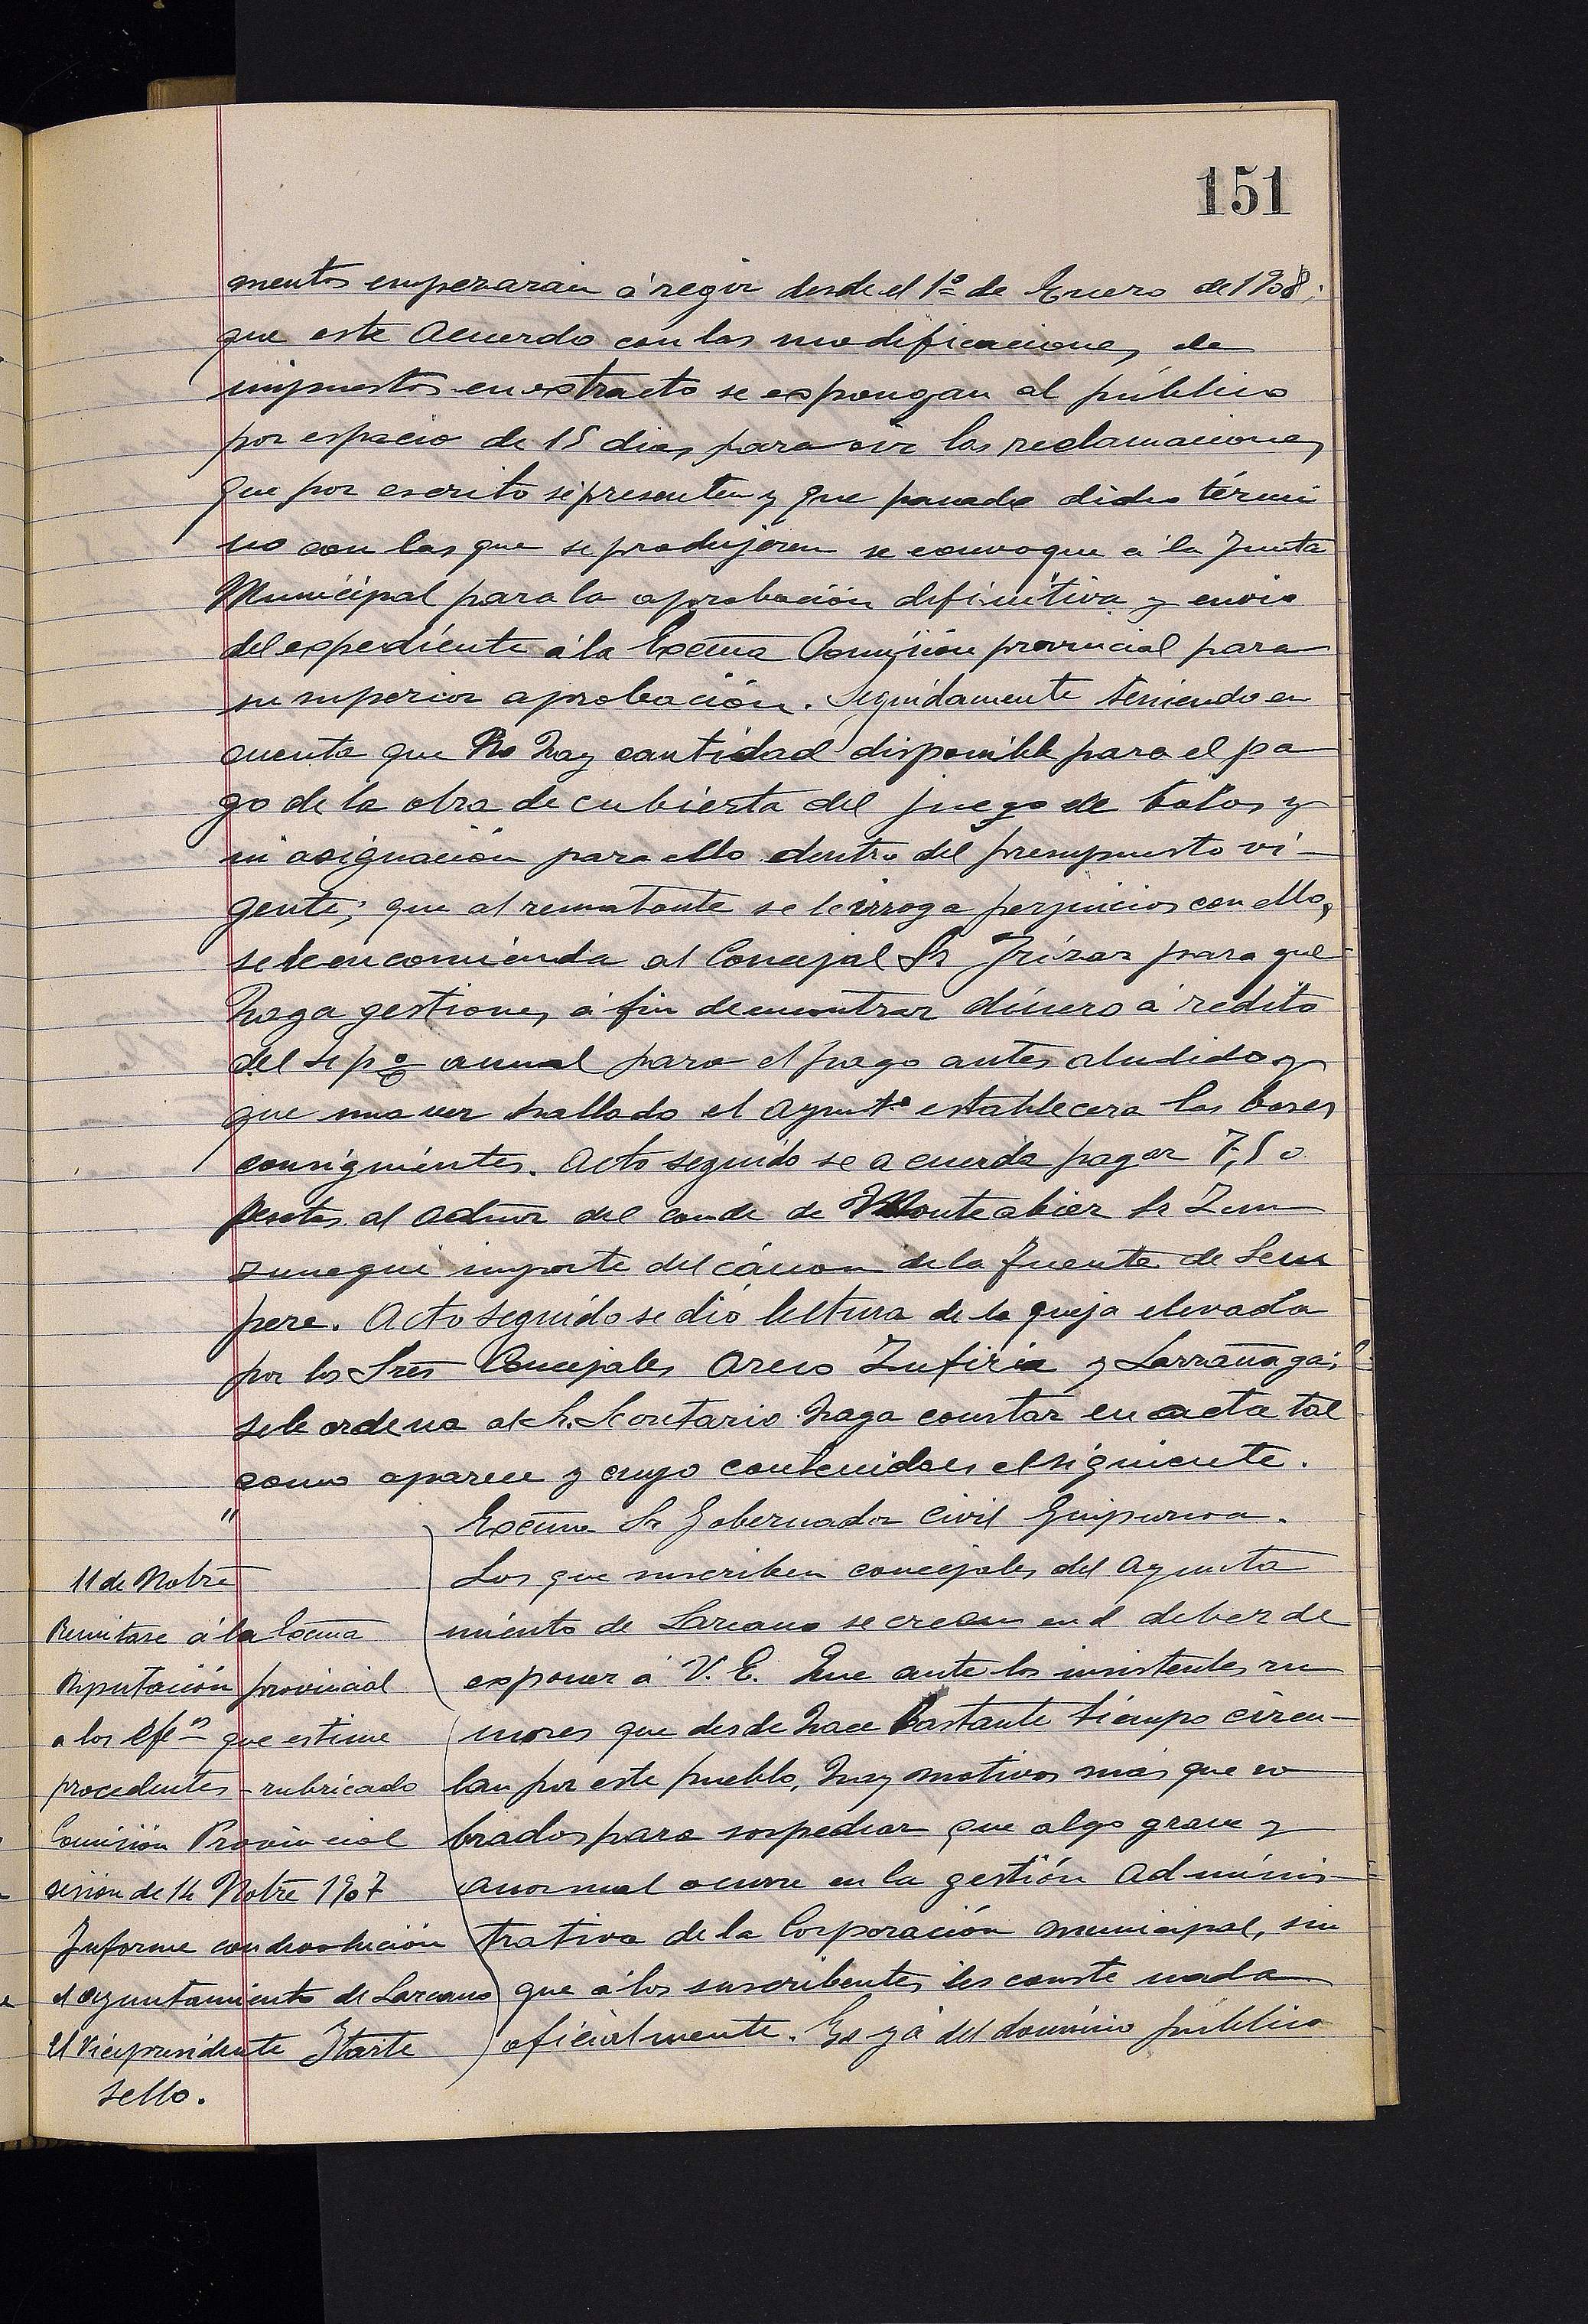 151
mentos empezarán á regir desde el 1º de Enero de 1908;
que este Acuerdo con las modificaciones de
impuestos en extracto se expongan al público
por espacio de 15 dias para oir las reclamaciones
que por escrito se presenten y que pasado dicho térmi
no con las que se produjeren se convoque á la Junta
Municipal para la aprobación definitiva y envio
del expediente á la Excma Comisión provincial para
su superior aprobación. Seguidamente teniendo en
cuenta que no hay cantidad disponible para el pa
go de la obra de cubierta del juego de bolos y
ni asignación para ello dentro del presupuesto vi-
gente; que al rematante se le irroga perjuicios con ello,
se le encomienda al Concejal Sr Irizar para que
haga gestiones á fin de encontrar dinero á redito
del 4 pº anual para el pago antes aludido y
que una vez hallado el Ayuntº establecera las bases
consiguientes. Acto seguido se acuerda pagar 7,50
pesetas al Admor del conde de Monteabier Sr Zum
zunegui importe del cánon de la fuente de Sem
pere. Acto seguido se dió lectura de la queja elevada
por los Sres Concejales Areso Zufiria y Larrañaga;
se le ordena al Sr. Secretario haga constar en acta tal
como aparece y cuyo contenido es el siguiente.
"
Excmo Sr Gobernador Civil Guipuzcoa.
Los que suscriben concejales del Ayunta
miento de Lazcano se creen en el deber de
exponer á V. E. Que ante los insistentes ru
mores que desde hace bastante tiempo circu-
lan por este pueblo, hay motivos más que so
brados para sospechar que algo grave y
anormal ocurre en la gestión Adminis-
trativa de la Corporación municipal, sin
que á los suscribentes les conste nada
oficialmente. Es yá del dominio público
11 de Nobre
Remitase á la Excma
Diputación provincial
a los efeos que estime
procedentes - rubricado
Comisión Provincial
sesión de 14 Nobre 1907
Informe con devolución
el ayuntamiento de Lazcano
El Vicepresidente Itarte
sello.